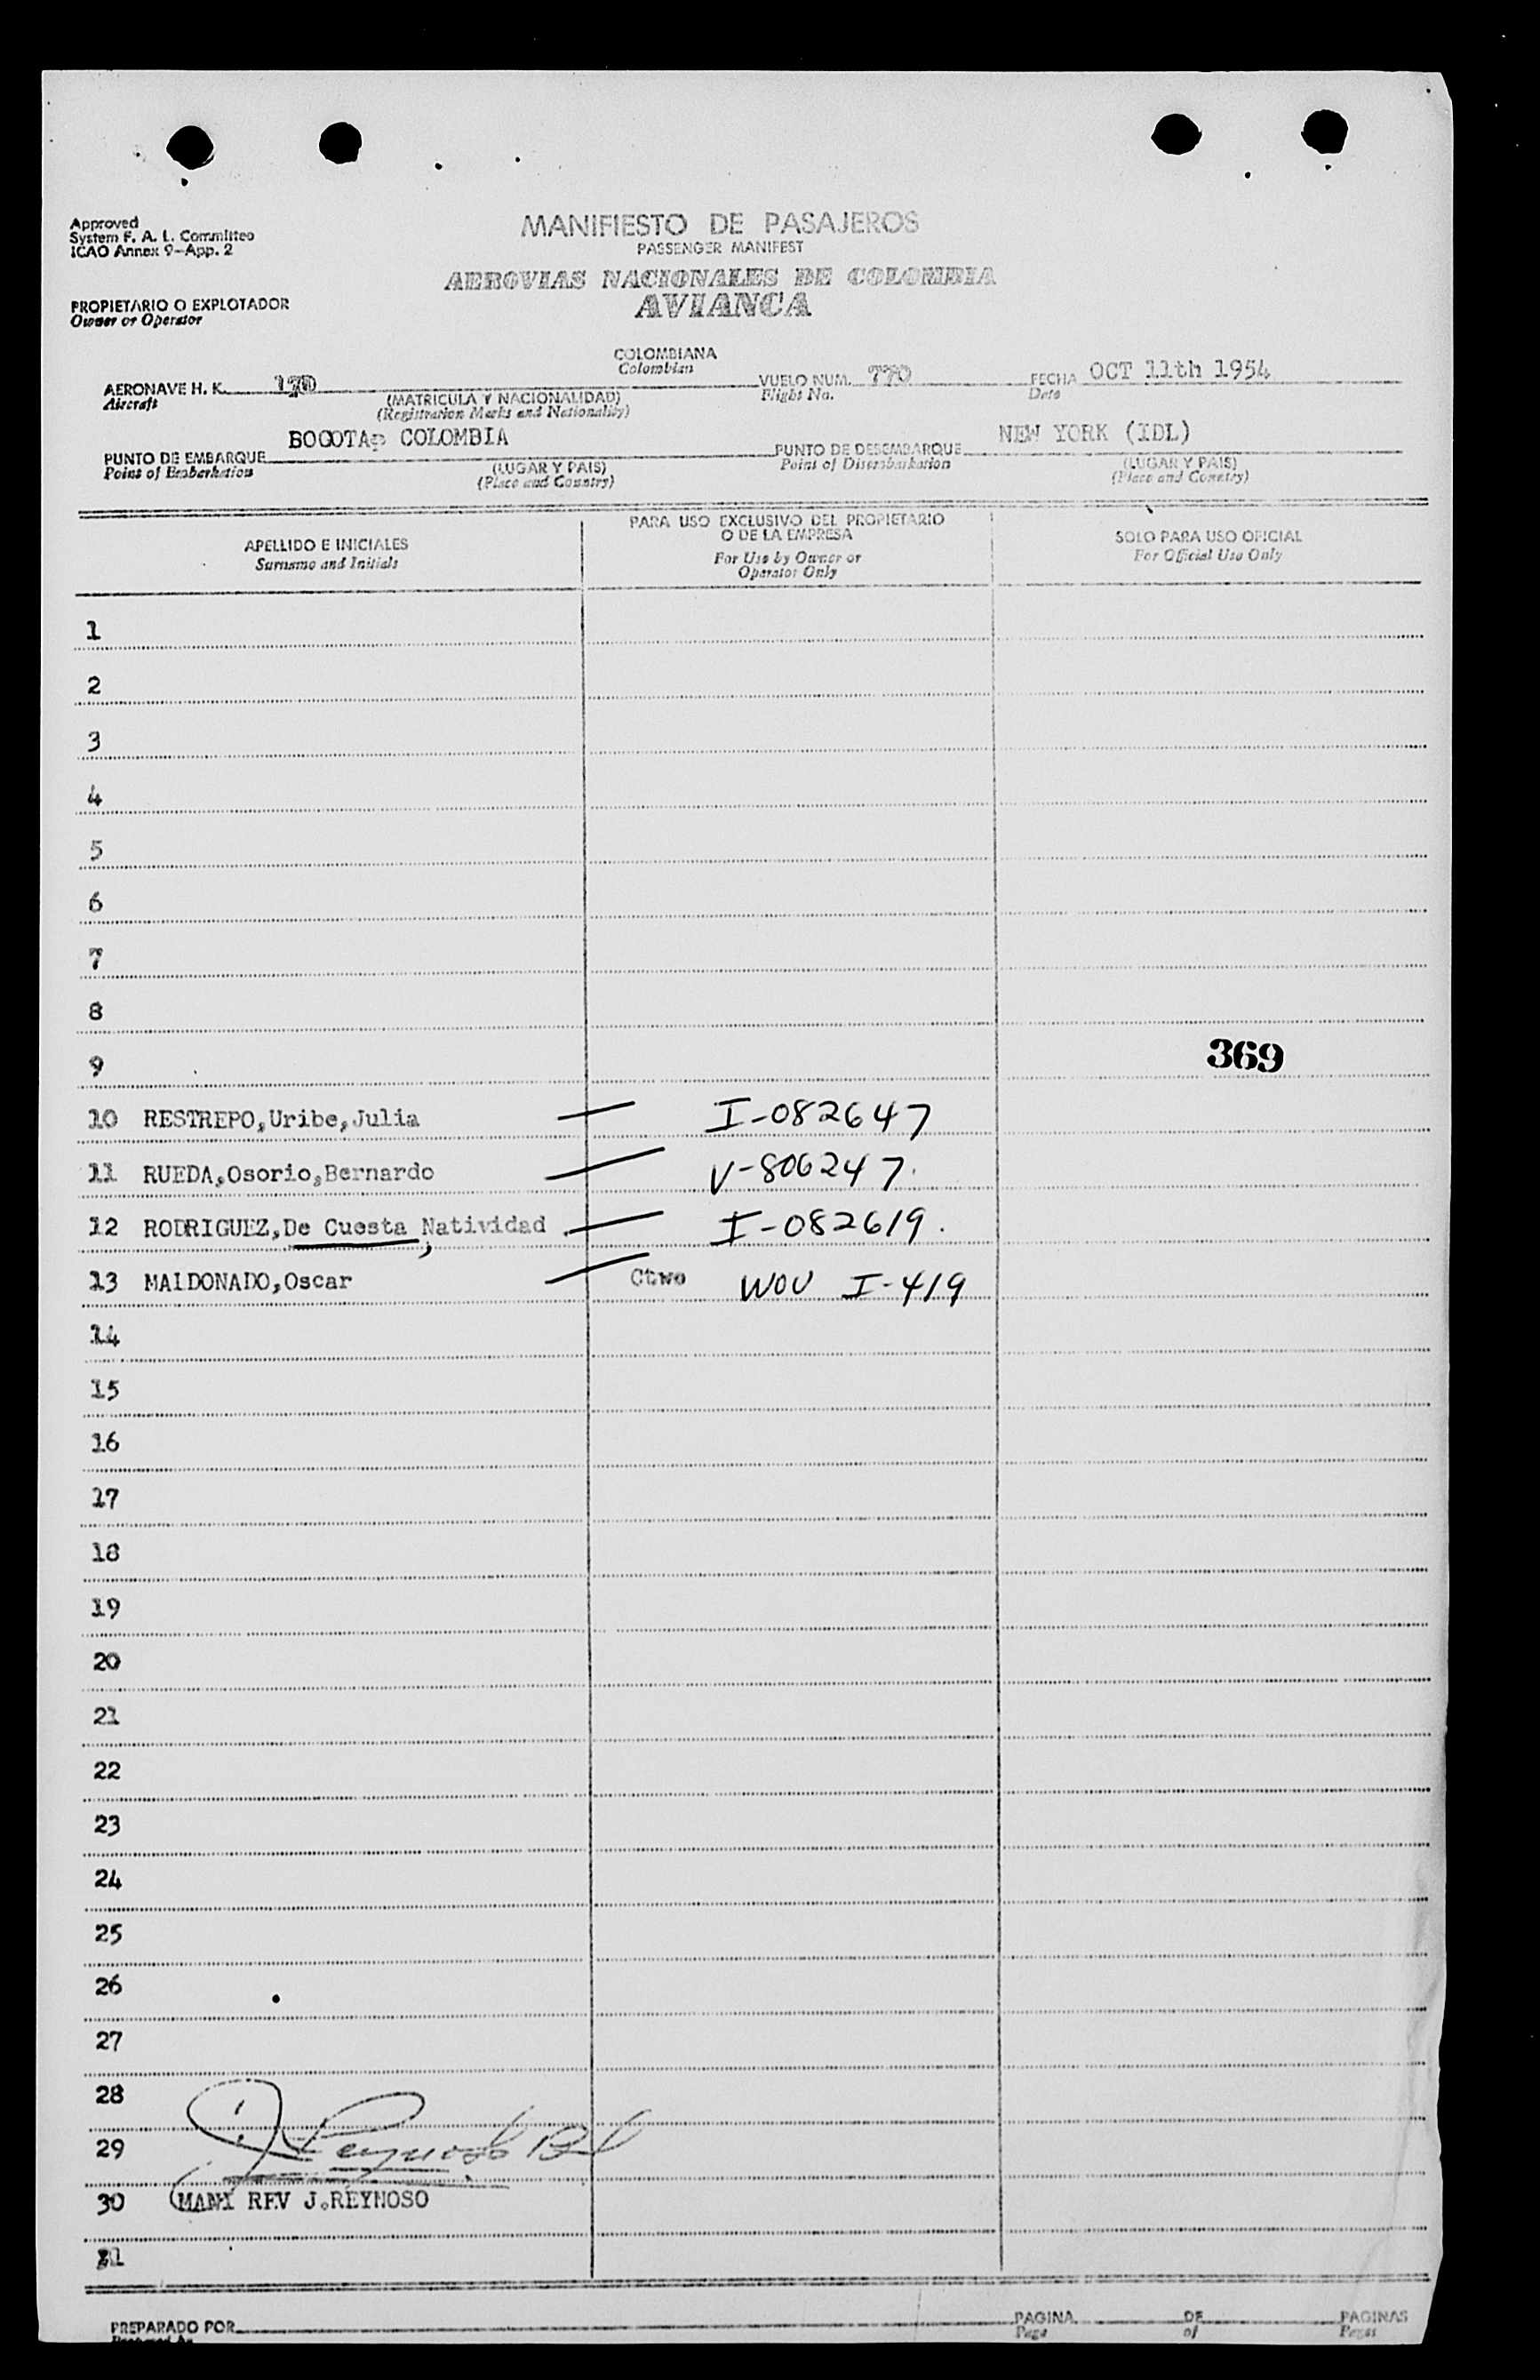 Approved
System F. A. L. Committee
ICAO Annex 9-App. 2
MANIFIESTO DE PASAJEROS
PASSENGER MANIFEST
AEROVIAS NACIONALES DE COLOMBIA
AVIANCA
PROPIETARIO O EXPLOTADOR
Owner or Operator
COLOMBIANA
Colombian
AERONAVE H. K. 170 VUELO NUM. 770 FECHA OCT 11th 1954
Aircraft (MATRICULA Y NACIONALIDAD) Flight No. Date
(Registration Marks and Nationality)
BOGOTA, COLOMBIA NEW YORK (IDL)
PUNTO DE EMBARQUE PUNTO DE DESEMBARQUE
Point of Embarkation (LUGAR Y PAIS) Point of Disembarkation (LUGAR Y PAIS)
(Place and Country) (Place and Country)
APELLIDO E INICIALES
Surname and Initials
PARA USO EXCLUSIVO DEL PROPIETARIO
O DE LA EMPRESA
For Use by Owner or
Operator Only
SOLO PARA USO OFICIAL
For Official Use Only
1
2
3
4
5
6
7
8
9 369
10 RESTREPO,Uribe,Julia I-082647
11 RUEDA,Osorio,Bernardo V-806247.
12 RODRIGUEZ,De Cuesta, Natividad I-082619.
13 MALDONADO,Oscar Ctwo WOV I-419
14
15
16
17
18
19
20
21
22
23
24
25
26
27
28
29
30 REV J.REYNOSO
PREPARADO POR PAGINA DE PAGINAS
Prepared by Page of Pages